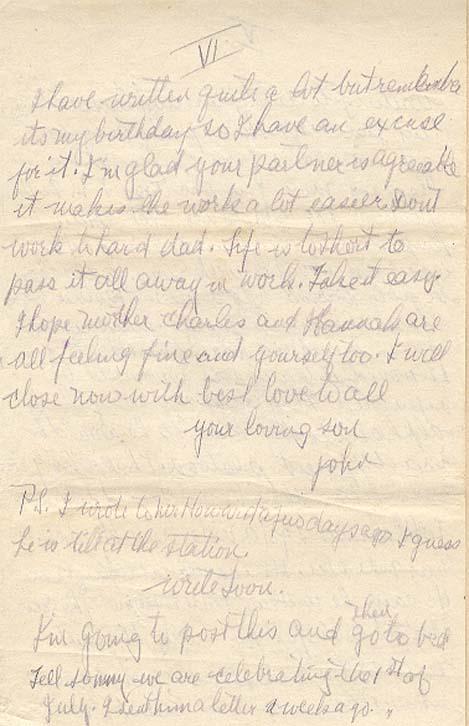 VI
I have written quite a lot but remember
its my birthday so I have an excuse
for it. I'm glad your partner is agreeable
it makes the work a lot easier. Dont
work to hard dad. Life is to short to
pass it all away in work. Take it easy.
I hope mother Charles and Hannah are
all feeling fine and yourself too. I will
close now with best love to all
your loving son
John
P.S. I wrote to a few days ago I guess
he is still at the station.
write soon.
I'm going to post this and then go to bed
Tell sonny we are celebrating the 1st of
July. I sent him a letter a week ago.